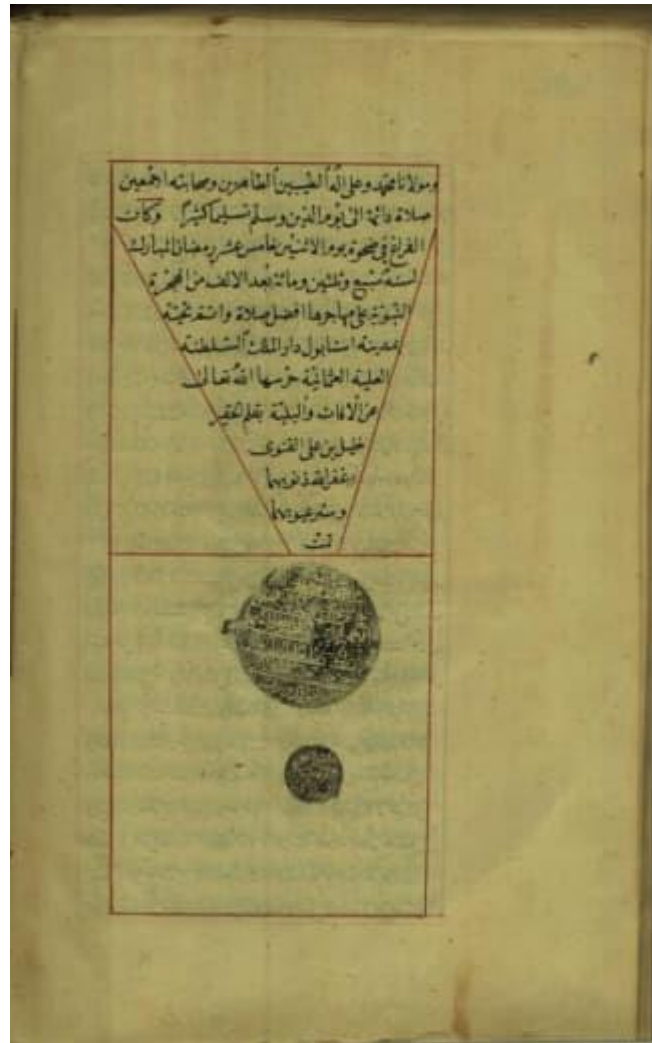 ومولانا محمد وعلى اله الطيبين الطاهرين وصحابته اجمعين
صلاة دائمة الى يوم الدين وسلم تسليما كثيرا وكان
الفراغ في ضحوة يوم الاثنين خامس عشر رمضان المبارك
لسنة سبع وثلثين ومائة بعد الالف من الهجرة
النبوية على مهاجرها افضل صلاة واتم تحية
بمدينة استانبول دار الملك السلطنة
العلية العثمانية حرسها الله تعالى
عن الافات والبلية بقلم الحقير
خليل بن على القنوى
غفر الله ذنوبهما
وستر عيوبهما
تمت